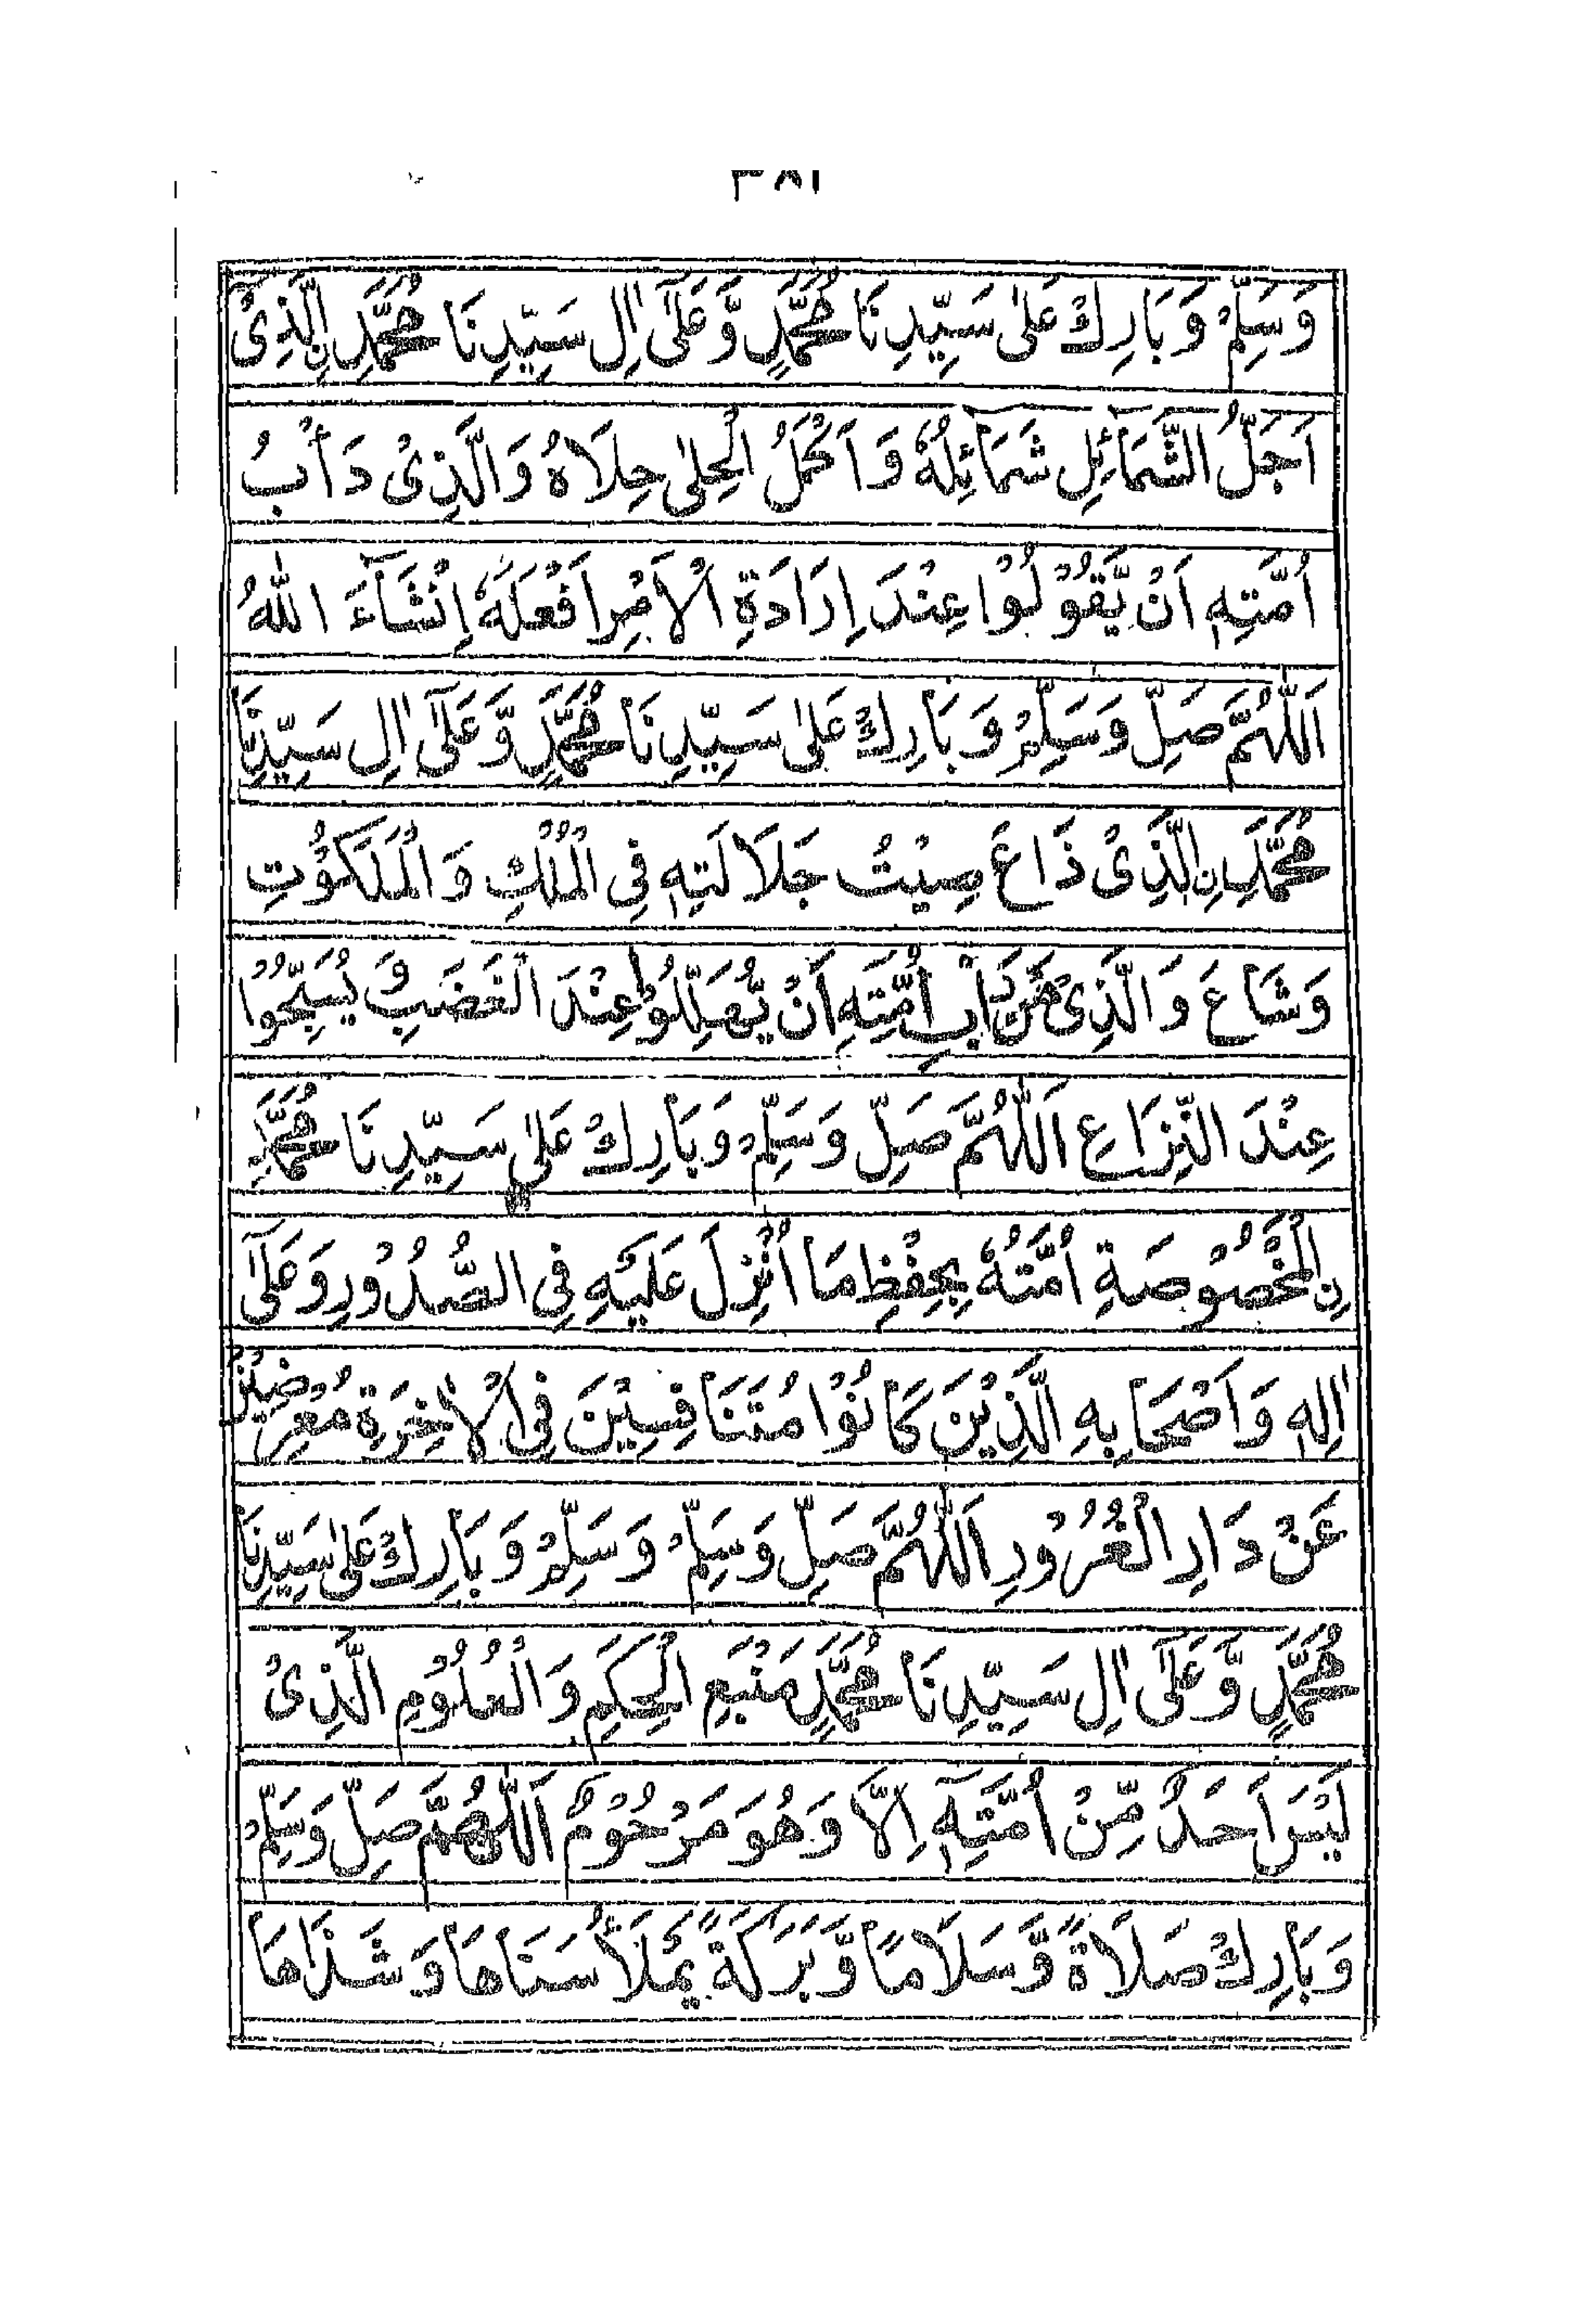 وَسَلِّمْ وَبَارِكْ عَلٰى سَيِّدِنَا مُحَمَّدٍ وَّعَلٰٓى اٰلِ سَيِّدِنَا مُحَمَّدِ نِ الَّذِىْ
اَجَلُّ الشَّمَآئِلِ شَمَآئِلُهٗ وَاَكْمَلُ الْحِلٰى حِلَاهُ وَالَّذِىْ دَأْبُ
اُمَّتِهٖ اَنْ يَّقُوْلُوْا عِنْدَ اِرَادَةِ الْاَمْرِ اَفْعَلُهٗ اِنْشَآءَ اللّٰهُ
اَللّٰهُمَّ صَلِّ وَسَلِّمْ وَبَارِكْ عَلٰى سَيِّدِنَا مُحَمَّدٍ وَّعَلٰٓى اٰلِ سَيِّدِنَا
مُحَمَّدِ نِ الَّذِىْ ذَاعَ صِيْتُ جَلَالَتِهٖ فِى الْمُلْكِ وَالْمَلَكُوْتِ
وَشَاعَ وَالَّذِىْ مِنْ دَأْبِ اُمَّتِهٖ اَنْ يُّهَلِّلُوْا عِنْدَ الْغَضَبِ وَيُسَبِّحُوْا
عِنْدَ النِّزَاعِ اَللّٰهُمَّ صَلِّ وَسَلِّمْ وَبَارِكْ عَلٰى سَيِّدِنَا مُحَمَّدِ
نِ الْمَخْصُوْصَةِ اُمَّتُهٗ بِحِفْظِ مَا اُنْزِلَ عَلَيْهِ فِى الصُّدُوْرِ وَعَلٰٓى
اٰلِهٖ وَاَصْحَابِهِ الَّذِيْنَ كَانُوْا مُتَنَافِسِيْنَ فِى الْاٰخِرَةِ مُعْرِضِيْنَ
عَنْ دَارِ الْغُرُوْرِ اَللّٰهُمَّ صَلِّ وَسَلِّمْ وَسَلِّمْ وَبَارِكْ عَلٰى سَيِّدِنَا
مُحَمَّدٍ وَّعَلٰٓى اٰلِ سَيِّدِنَا مُحَمَّدٍ مَنْبَعِ الْحِكَمِ وَالْعُلُوْمِ الَّذِىْ
لَيْسَ اَحَدٌ مِّنْ اُمَّتِهٖٓ اِلَّا وَهُوَ مَرْحُوْمٌ اَللّٰهُمَّ صَلِّ وَسَلِّمْ
وَبَارِكْ صَلَاةً وَّسَلَامًا وَّبَرَكَةً يَمْلَأُ سَنَاهَا وَشَذَاهَا